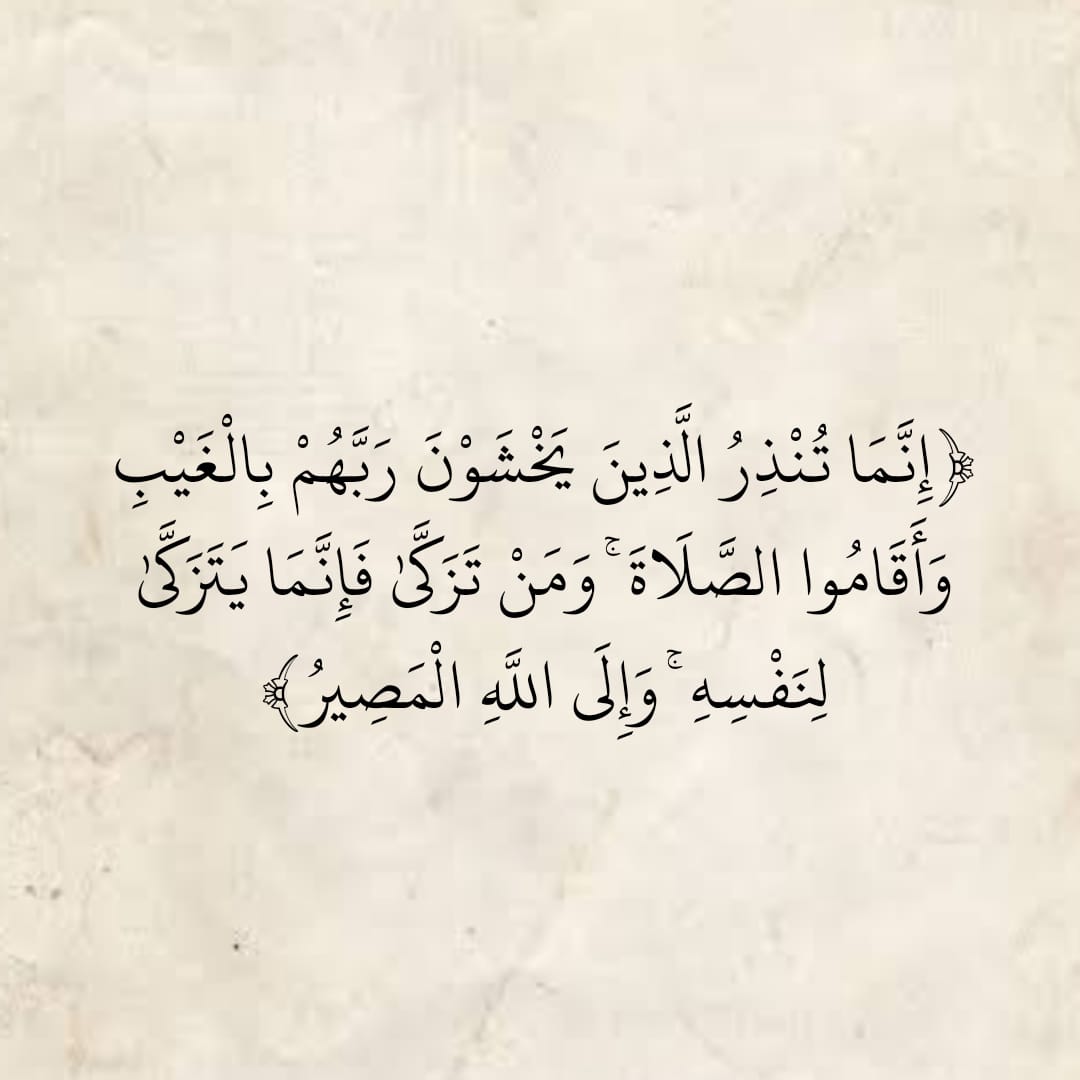 ﴿إِنَّمَا تُنْذِرُ الَّذِينَ يَخْشَوْنَ رَبَّهُمْ بِالْغَيْبِ
وَأَقَامُوا الصَّلَاةَ ۚ وَمَنْ تَزَكَّىٰ فَإِنَّمَا يَتَزَكَّىٰ
لِنَفْسِهِ ۚ وَإِلَى اللَّهِ الْمَصِيرُ﴾